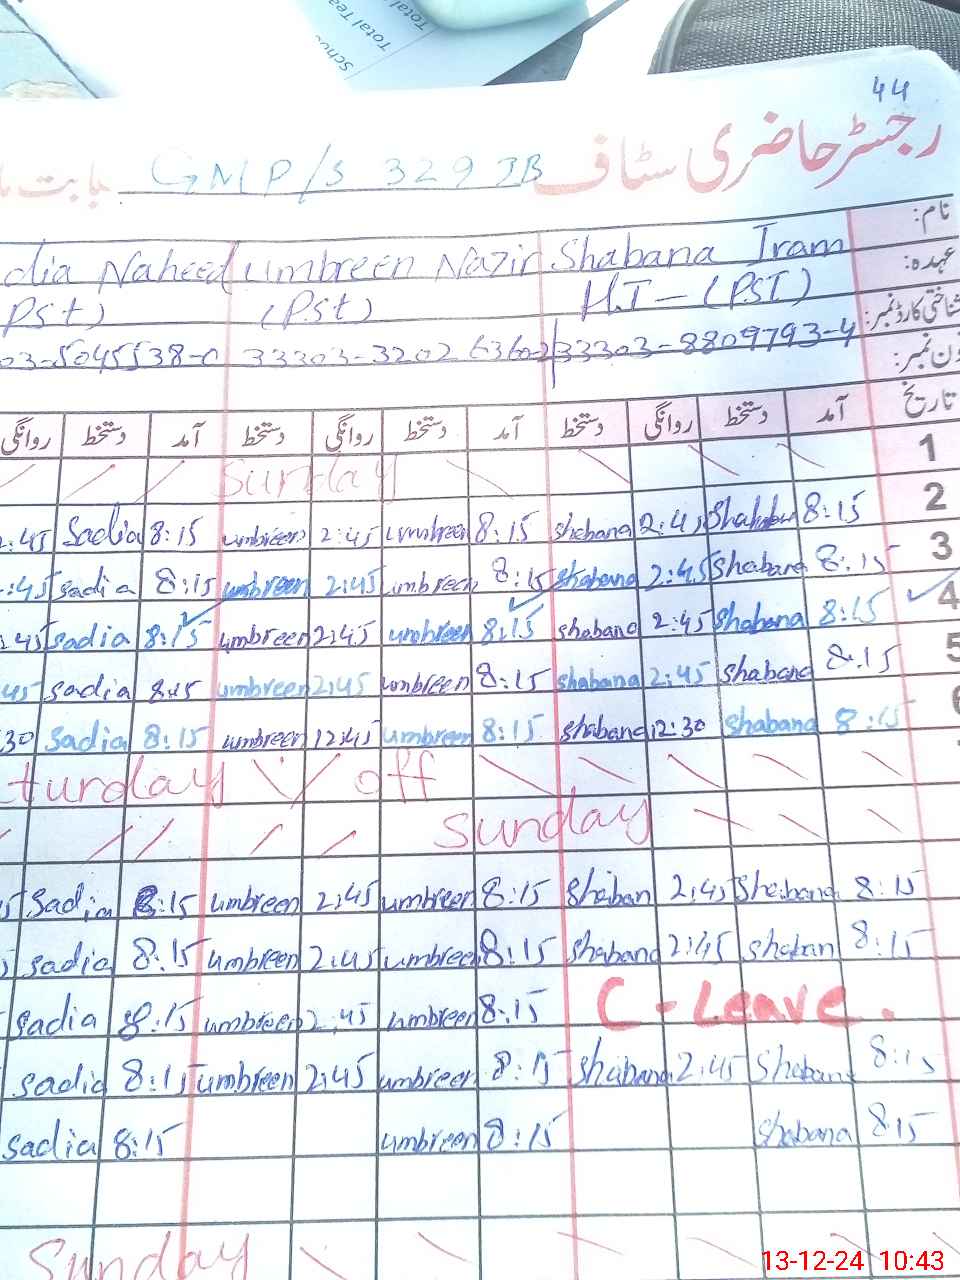 Total Tea
Total
44
رجسٹر حاضری سٹاف GMP/S 329 JB بابت
نام: Shabana Iram umbreen Nazir dia Naheed
عہدہ: H.T - (PST) (PSt) PSt)
شناختی کارڈ نمبر: 33303-8809793-4
ون نمبر:
تاریخ آمد دستخط روانگی دستخط آمد دستخط روانگی دستخط آمد دستخط روانگی
1 Sunday
2 8:15 2:45 shabana 8:15 umbreen 2:45 umbreen 8:15 Sadia :45
3 8:15 Shabana 2:45 shabana 8:15 umbreen 2:45 umbreen 8:15 sadia :45
4 8:15 Shabana 2:45 shabana 8:15 umbreen 2:45 umbreen 8:15 sadia :45
5 8:15 shabana 2:45 shabana 8:15 umbreen 2:45 umbreen 8:15 sadia 45
8:15 shabana 12:30 shabana 8:15 umbreen 12:45 umbreen 8:15 sadia 30
turday off
Sunday
8:15 Shabana 2:45 Shaban 8:15 umbreen 2:45 umbreen 8:15 Sadia 5
8:15 shaban 2:45 shabana 8:15 umbreen 2:45 umbreen 8:15 sadia
C-Leave. 8:15 umbreen 2:45 umbreen 8:15 sadia
8:15 Shabana 2:45 shabana 8:15 umbreen 2:45 umbreen 8:15 sadia
8:15 shabana 8:15 umbreen 8:15 sadia
Sunday
13-12-24 10:43